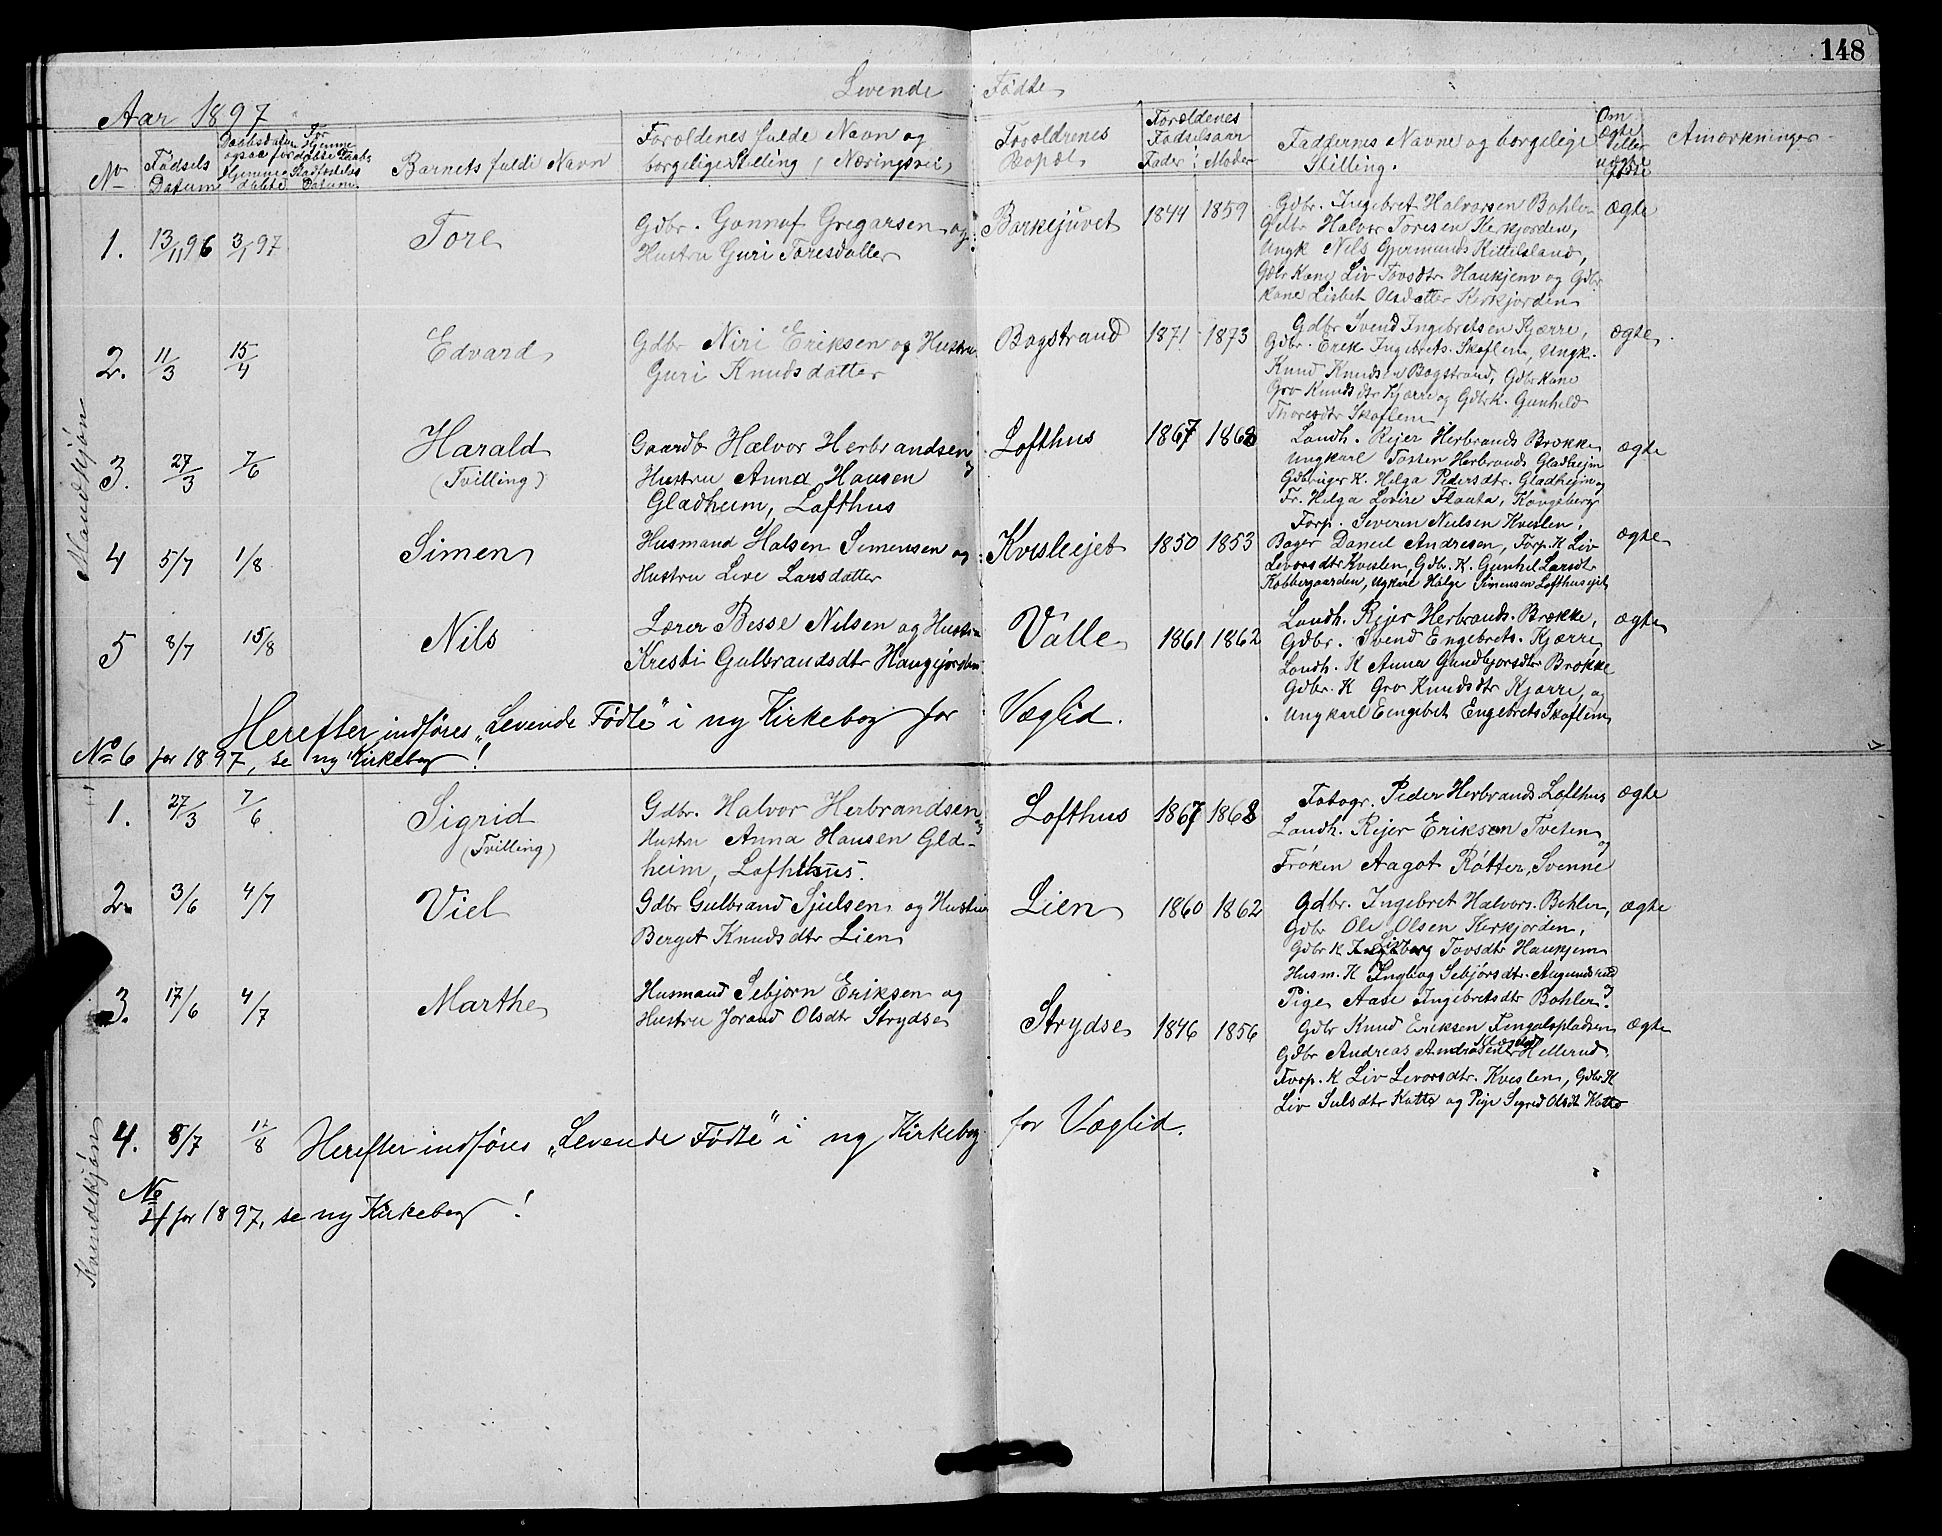 148
Levende Fødte
Aar 1897
No
Fødsels Datum
Daabsdatum ogsaa for hjemme døbte
For Hjemme døbte Daabs Stadfæstelses Datum
Barnets fulde Navn
Forældenes fulde Navn og borgelige Stilling (Næringsvei)
Forældrenes Bopæl
Forældenes Fødselsaar
Fader Moder
Faddernes Navne og borgelige Stilling.
Om ægte eller uægte født
Anmærkninger
Mandkjøn
1. 13/11 96 3/1 97 Tore
Gdbr. Gunnuf Gregarsen og
Hustru Guri Toresdatter
Barkejuvet 1844 1859
Gdbr. Ingebret Halvorsen Bøhler
Gdbr Halvor Toresen Kerkjorden,
Ungk Nils Gjermunds Kittilsland,
Gdbr Kone Liv Tovsdtr Haukjem og Gdbr
kone Lisbet Olsdatter Kerkjorden
ægte
2. 11/3 15/4 Edvard
Gdbr Niri Eriksen og Hustru
Guri Knudsdatter
Bagstrand 1871 1873
Gdbr Svend Ingebretsen Kjærre,
Gdbr. Erik Ingebrets. Skaflem, Ungk.
Knud Knudsen Bagstrand, Gdbr Kone
Gro Knudsdtr Kjærre og Gdbr k. Gunhild
Thoresdtr Skaflem
ægte.
3. 27/3 7/6 Harald
(Tvilling)
Gaardb Halvor Herbrandsen og
Hustru Anna Hansen
Gladheim, Lofthus
Lofthus 1867 1868
Landh. Rejer Herbrands Brøkke
Ungkarl Tosten Herbrands Gladhejm
Gdbruger K. Helga Pedersdtr. Gladhejm og
Fr. Helga Lovise Flauta, Kongsberg
ægte
4 5/7 1/8 Simen
Husmand Halsen Simensen og
Hustru Live Larsdatter
Kvisleejet 1850 1853
Forp. Severin Nielsen Kvislen,
Bager Daneil Andresen, Forp. K Liv
Levorsdtr Kvislen, Gdbr. K. Gunhil Larsdtr
Kobbergaarden, Ugkarl Helge Simensen Lofthusejet
ægte
5 8/7 15/8 Nils
Lærer Besse Nilsen og Hustru
Kresti Gulbrandsdtr Haugjorden
Valle 1861 1862
Landh. Rejer Herbrands. Brøkke,
Gdbr. Svend Engebrets. Kjærre
Landh. K Anna Gundbjørsdtr Brøkke
Gdbr. K Gro Knudsdtr Kjærre, og
Ungkarl Eengebet Engebrets Skaflem
ægte
Herefter indføres „Levende Fødte" i ny Kirkebog for Væglid.
No 6 for 1897, se ny Kirkebog!
Kvindekjøn
1. 27/3 7/6 Sigrid
(Tvilling)
Gdbr. Halvor Herbrandsen og
Hustru Anna Hansen Glad-
heim, Lofthus.
Lofthus 1867 1868
Fotogr. Peder Herbrands Lofthus
Landh. Rejer Eriksen Tveten og
Frøken Aagot Røtter, Svenne
ægte
2. 3/6 4/7 Viel
Gdbr Gulbrand Sjulsen og Hustru
Berget Knudsdtr Lien
Lien 1860 1862
Gdbr. Ingebret Halvors. Bøhler,
Gdbr Ole Olsen Kerkjorden,
Gdbr K Liv Tovsdtr Haukjem
Husm. K Ingbog Sebjørsdtr. Aagundsrud
Pige Aase Ingebretsdtr Bøhler
ægte
3. 17/6 4/7 Marthe
Husmand Sebjørn Eriksen og
Hustru Jorand Olsdtr Strydse
Strydse 1846 1856
Gdbr Knud Eriksen Fengalspladsen
Gdbr Andreas Andrasen Hellerud,
Forp. K Liv Levorsdtr. Kvislen, Gdbr K
Liv Sulsdtr Katto og Pige Sigrid Olsdt Katto
ægte
4. 8/7 12/8 Herefter indføres „Levende Fødte" i ny Kirkebog for Væglid.
No 4 for 1897, se ny Kirkebog!